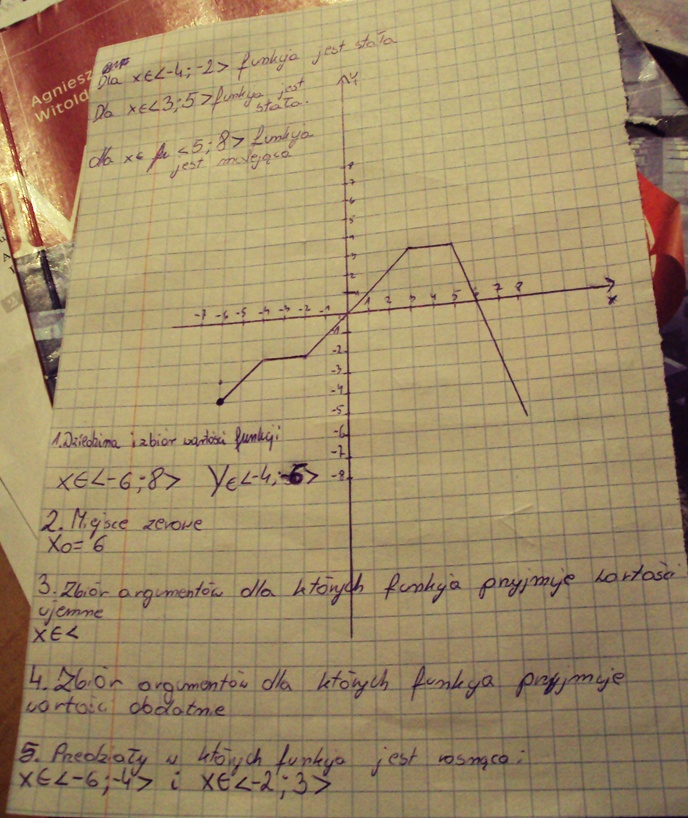 Agniesz
Witold
Dla x∈<-4;-2> funkcja jest stała
Dla x∈<3;5> funkcja jest
stała.
dla x∈ <5;8> funkcja
jest malejąca
Y
8
7
6
5
4
3
2
1
-7 -6 -5 -4 -3 -2 -1 1 2 3 4 5 6 7 8
x
-1
-2
-3
-4
-5
-6
-7
-8
1. Dziedzina i zbiór wartości funkcji
x∈<-6;8> y∈<-4;-5>
2. Miejsce zerowe
x0=6
3. Zbiór argumentów dla których funkcja przyjmuje wartości
ujemne
x∈<
4. Zbiór argumentów dla których funkcja przyjmuje
wartości dodatnie
5. Przedziały w których funkcja jest rosnąca:
x∈<-6;-4> i x∈<-2;3>